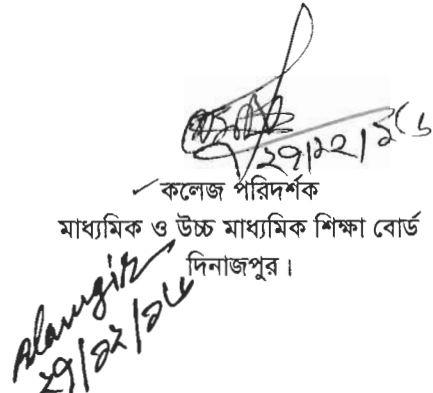 ২৭/১২/২৫
কলেজ পরিদর্শক
মাধ্যমিক ও উচ্চ মাধ্যমিক শিক্ষা বোর্ড
দিনাজপুর।
Alamgir
২৭/১২/২৫